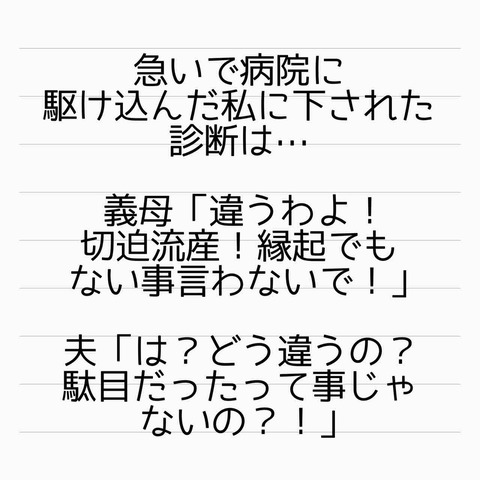 急いで病院に
駆け込んだ私に下された
診断は…
義母「違うわよ！
切迫流産！縁起でも
ない事言わないで！」
夫「は？どう違うの？
駄目だったって事じゃ
ないの？！」